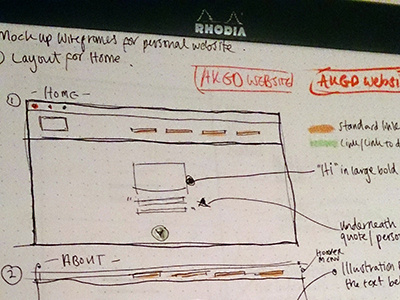 RHODIA
Mockup Wireframes for personal website.
Layout for Home.
AKGD WEBSITE
AKGD WEBSI
① - HOME -
standard link
link/link to d
"Hi" in large bold
underneath
quote/perso
② - ABOUT -
HOVER
MENU
Illustration
the text be